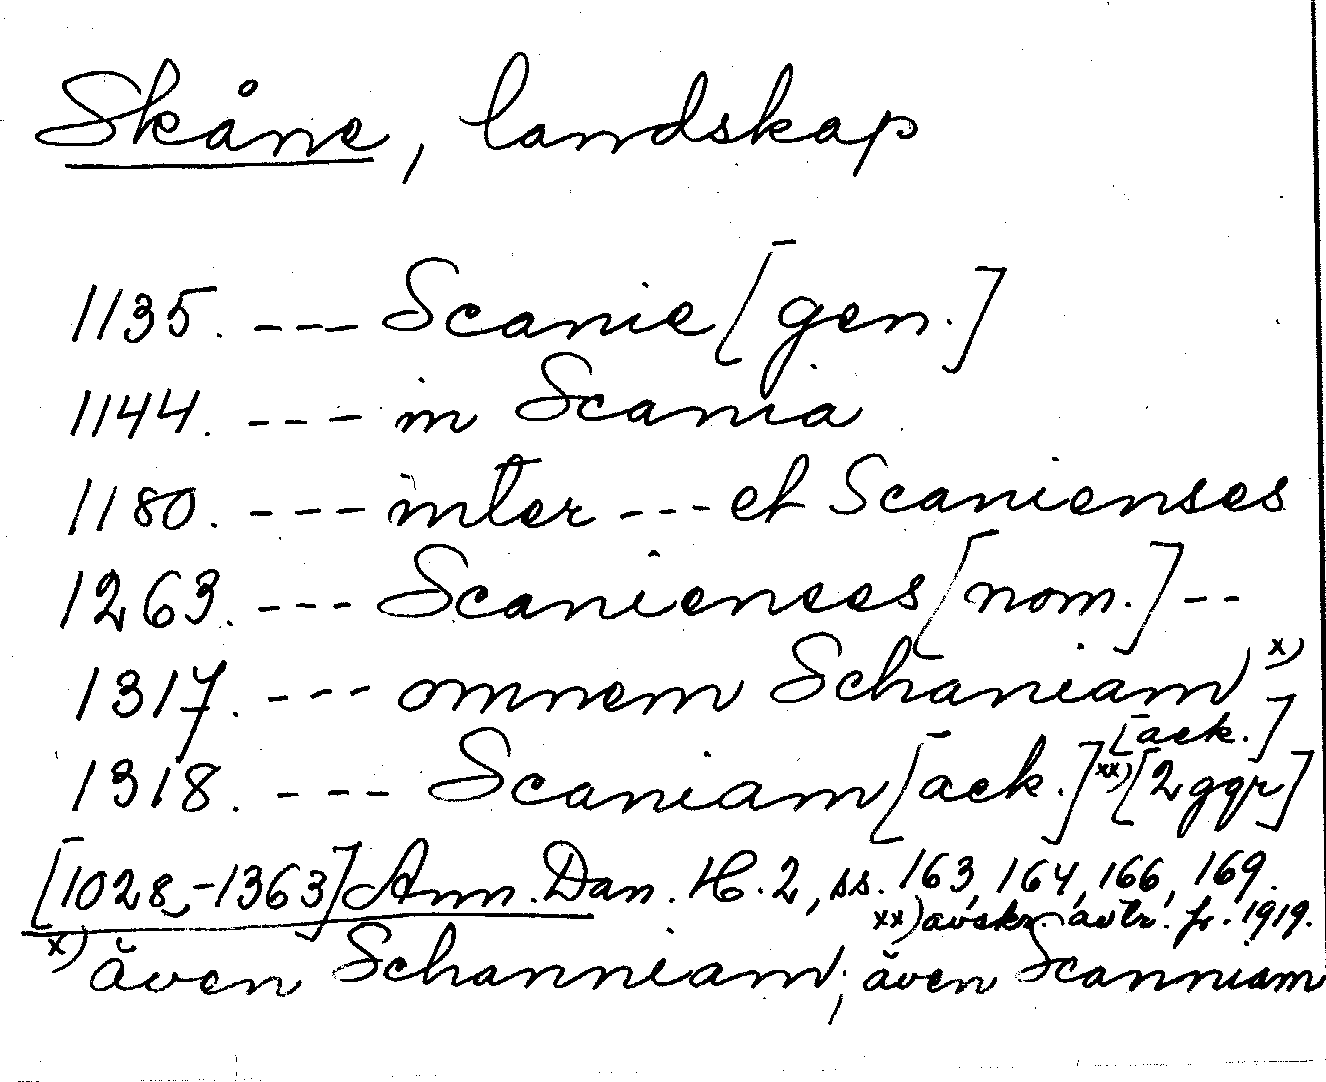 Skåne, landskap
1135. --- Scanie [gen.]
1144. --- in Scania
1180. --- inter --- et Scanienses
1263. --- Scanienses [nom.] --
1317. --- omnem Schaniam x)
[ack.]
1318. --- Scaniam [ack.] xx) [2 ggr]
[1028-1363] Ann. Dan. H. 2, ss. 163, 164, 166, 169.
xx) avskr. avtr. fr. 1919.
x) även Schanniam; även Scanniam